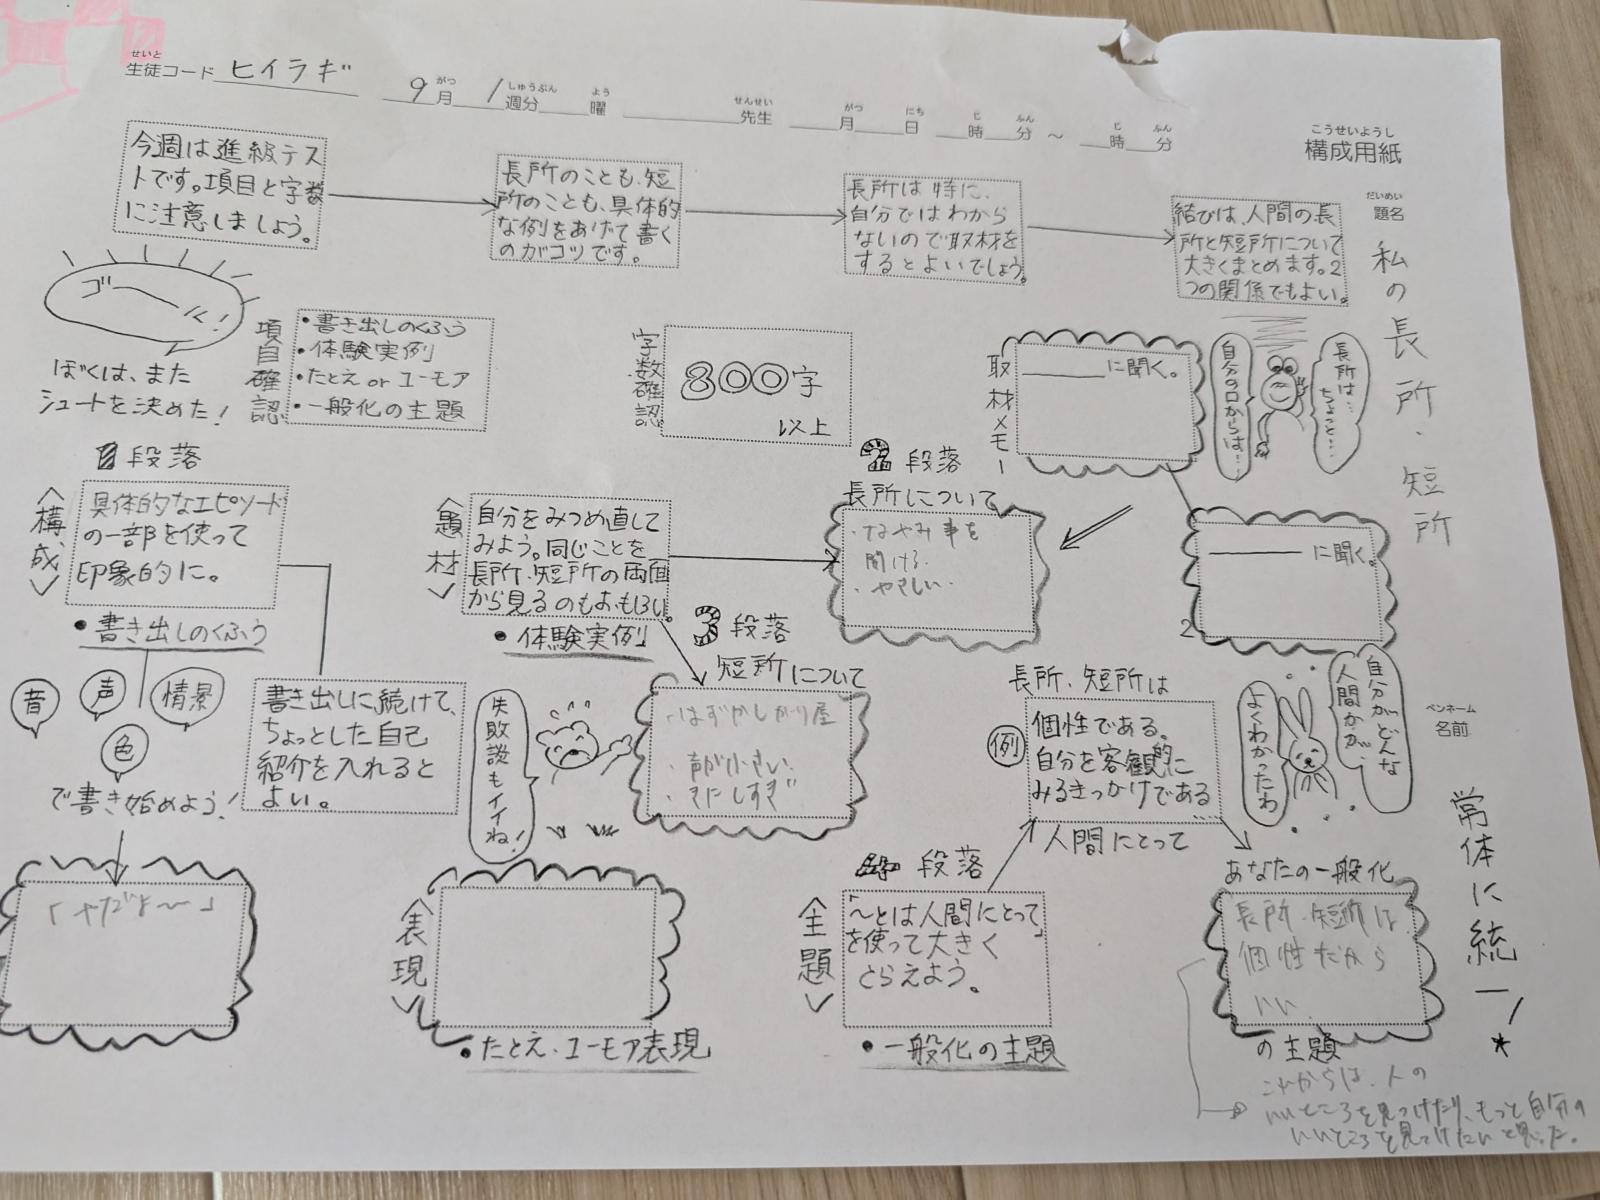 せいと
生徒コード ヒイラギ 9 月 1 週分 曜 先生 月 日 時 分 ～ 時 分
がつ しゅうぶん よう せんせい がつ にち じ ふん じ ふん
こうせいようし
構成用紙
だいめい
題名
私の長所・短所
ペンネーム
名前
常体に統一!
今週は進級テス
トです。項目と字数
に注意しましょう。
長所のことも、短
所のことも、具体的
な例をあげて書く
のがコツです。
長所は特に、
自分ではわから
ないので取材を
するとよいでしょう。
結びは、人間の長
所と短所について
大きくまとめます。2
つの関係でもよい。
ゴール!
ぼくは、また
シュートを決めた!
項目確認
・書き出しのくふう
・体験実例
・たとえ or ユーモア
・一般化の主題
字数確認
800字
以上
取材メモー
に聞く。
自分の口からは…
長所は…
ちょっと…
2
に聞く。
1段落
<構成>
具体的なエピソード
の一部を使って
印象的に。
・書き出しのくふう
音
声
情景
色
で書き始めよう!
書き出しに続けて、
ちょっとした自己
紹介を入れると
よい。
「やだよ～」
<題材>
自分をみつめ直して
みよう。同じことを
長所・短所の両面
から見るのもおもしろい。
・体験実例
2段落
長所について
・なやみ事を
聞ける
・やさしい
3段落
短所について
・はずかしがり屋
・声が小さい
・きにしすぎ
失敗談もイイね!
<表現>
・たとえ・ユーモア表現
4段落
<主題>
「～とは人間にとって」
を使って大きく
とらえよう。
・一般化の主題
長所・短所は
例
個性である。
自分を客観的に
みるきっかけである
人間にとって
自分がどんな
人間かが、
よくわかったわ
あなたの一般化
長所・短所は
個性だから
いい
の主題
これからは、人の
いいところを見つけたり、もっと自分の
いいところを見つけたいと思った。